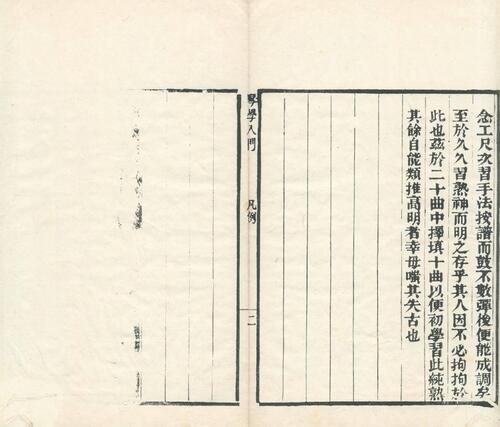 念工尺次習手法按譜而鼓不數彈後便能成調矣
至於久久習熟神而明之存乎其人因不必拘拘於
此也茲於二十曲中擇填十曲以便初學習此純熟
其餘自能類推高明者幸毋嗤其失古也
琴學入門
凡例
二